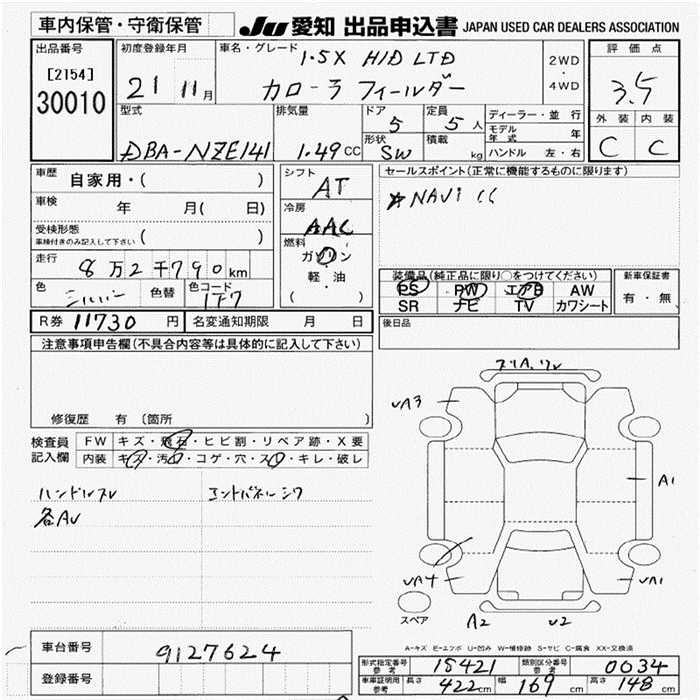 車内保管・守衛保管
JU 愛知 出品申込書 JAPAN USED CAR DEALERS ASSOCIATION
出品番号
[2154]
30010
初度登録年月
21 11月
車名・グレード
1.5X HID LTD
カローラ フィールダー
2WD
・
4WD
評価点
3.5
外装 内装
C C
型式
DBA-NZE141
排気量
1.49cc
ドア
5
定員
5人
形状
SW
積載
kg
ディーラー・並行
モデル年式 年
ハンドル 左・右
車歴
自家用・( )
車検
年 月( 日)
受検形態
車検付きのみ記入して下さい ( )
走行
8万2千790km
色
シルバー
色替
色コード
1F7
シフト
AT
冷房
AAC
燃料
ガソリン
軽・油
( )
セールスポイント(正常に機能するものに限ります)
NAVi
装備品(純正品に限り○をつけてください)
PS PW エアB AW
SR ナビ TV カワシート
新車保証書
有・無
R券 11730円
名変通知期限 月 日
後日品
注意事項申告欄(不具合内容等は具体的に記入して下さい)
修復歴 有 (箇所
検査員記入欄
FW キズ・飛石・ヒビ割・リペア跡・X要
内装 キズ・汚れ・コゲ・穴・スレ・キレ・破レ
ハンドルスレ
エンドパネルシワ
各AU
UA3
A1
UA4
UA1
A2
U2
スペア
A-キズ E-エクボ U-凹み W-補修跡 S-サビ C-腐食 XX-交換済
車台番号 9127624
登録番号
型式指定番号 参考 15421
類別区分番号 参考 0034
車庫証明用 参考 長さ 422cm 幅 169cm 高さ 148cm